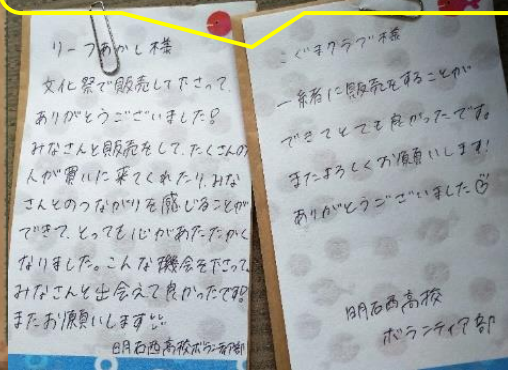 リーフあかし様
文化祭で販売して下さって、
ありがとうございました!
みなさんと販売をして、たくさんの
人が買いに来てくれたり、みな
さんとのつながりを感じることが
できて、とっても心があたたかく
なりました。こんな機会を下さって、
みなさんと出会えて良かったです!
またお願いします
明石西高校ボランティア部
こぐまクラブ様
一緒に販売をすることが
できてとても良かったです。
またよろしくお願いします!
ありがとうございました
明石西高校
ボランティア部